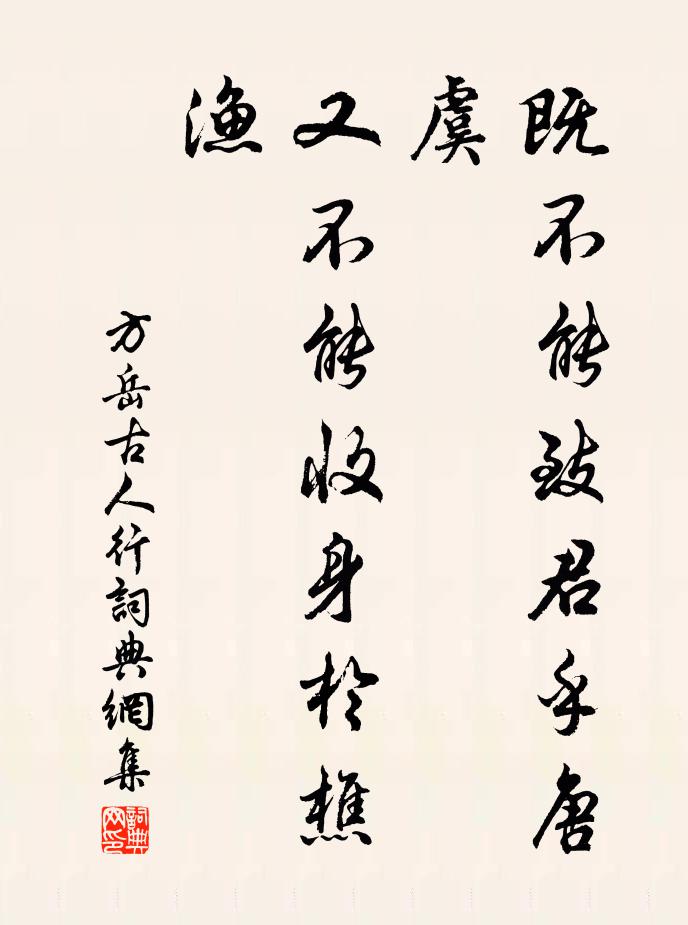 既不能致君乎唐
虞
又不能收身於樵
渔
方岳古人行詞典網集
詞典網印